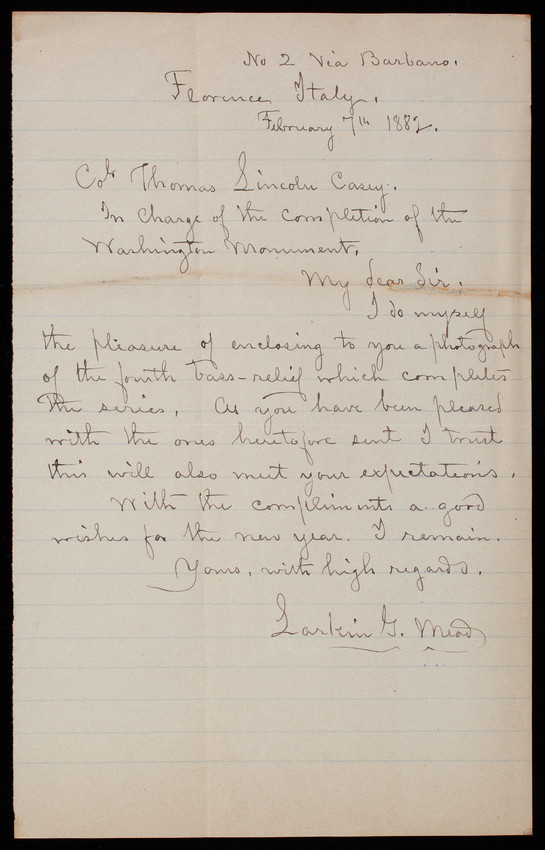 No 2 Via Barbano.
Florence Italy.
February 7th 1882.
Col. Thomas Lincoln Casey.
In charge of the completion of the
Washington Monument.
My dear Sir.
I do myself
the pleasure of enclosing to you a photograph
of the fourth bass-relief which completes
the series. As you have been pleased
with the ones heretofore sent I trust
this will also meet your expectations.
With the compliments a good
wishes for the new year. I remain.
Yours, with high regards.
Larkin G. Mead